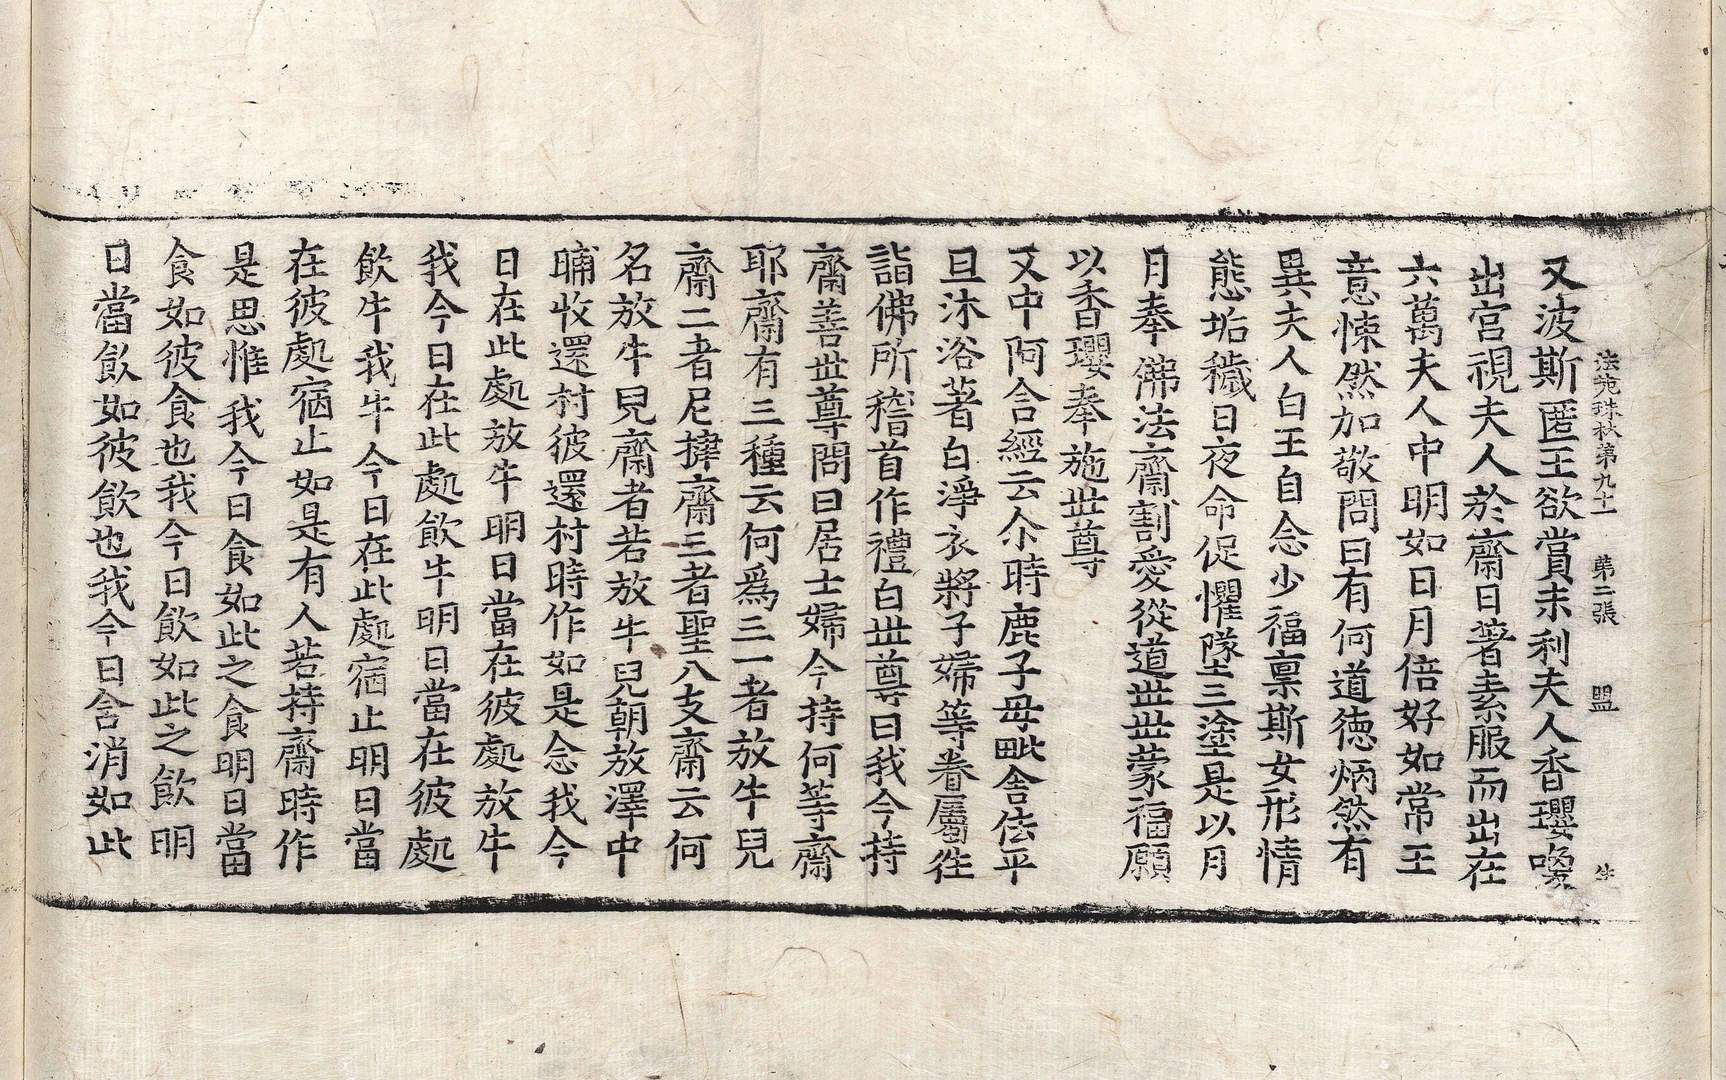 法苑珠林第九十一 第二張 盟
又波斯匿王欲賞末利夫人香瓔喚
出宮視夫人於齋日著素服而出在
六萬夫人中明如日月倍好如常王
意悚然加敬問曰有何道德炳然有
異夫人白王自念少福稟斯女形情
態垢穢日夜命促懼墜三塗是以月
月奉佛法齋割愛從道世世蒙福願
以香瓔奉施世尊
又中阿含經云尒時鹿子母毗舍佉平
旦沐浴著白淨衣將子婦等眷屬往
詣佛所稽首作禮白世尊曰我今持
齋善世尊問曰居士婦今持何等齋
耶齋有三種云何爲三一者放牛兒
齋二者尼揵齋三者聖八支齋云何
名放牛兒齋者若放牛兒朝放澤中
晡收還村彼還村時作如是念我今
日在此處放牛明日當在彼處放牛
我今日在此處飲牛明日當在彼處
飲牛我牛今日在此處宿止明日當
在彼處宿止如是有人若持齋時作
是思惟我今日食如此之食明日當
食如彼食也我今日飲如此之飲明
日當飲如彼飲也我今日含消如此